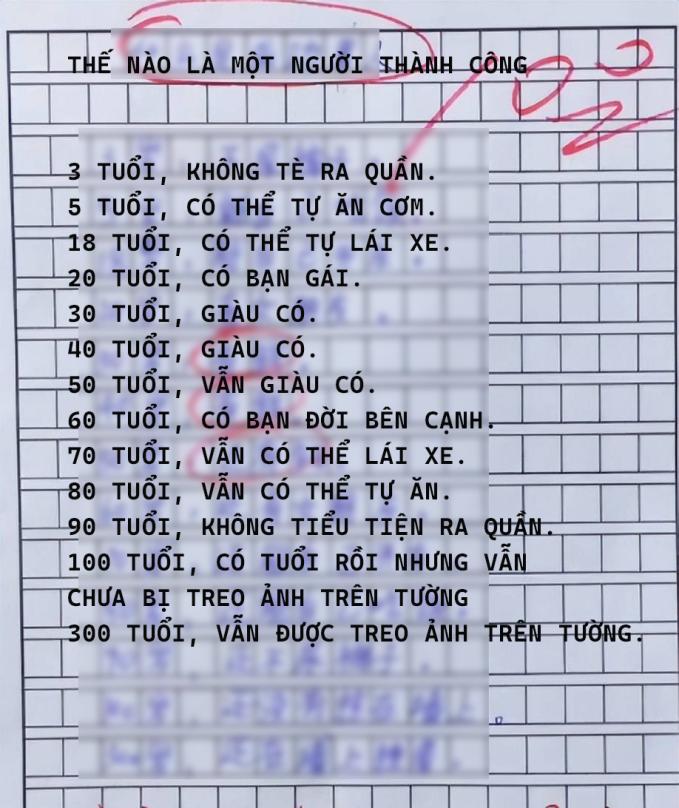 THẾ NÀO LÀ MỘT NGƯỜI THÀNH CÔNG
3 TUỔI, KHÔNG TÈ RA QUẦN.
5 TUỔI, CÓ THỂ TỰ ĂN CƠM.
18 TUỔI, CÓ THỂ TỰ LÁI XE.
20 TUỔI, CÓ BẠN GÁI.
30 TUỔI, GIÀU CÓ.
40 TUỔI, GIÀU CÓ.
50 TUỔI, VẪN GIÀU CÓ.
60 TUỔI, CÓ BẠN ĐỜI BÊN CẠNH.
70 TUỔI, VẪN CÓ THỂ LÁI XE.
80 TUỔI, VẪN CÓ THỂ TỰ ĂN.
90 TUỔI, KHÔNG TIỂU TIỆN RA QUẦN.
100 TUỔI, CÓ TUỔI RỒI NHƯNG VẪN
CHƯA BỊ TREO ẢNH TRÊN TƯỜNG
300 TUỔI, VẪN ĐƯỢC TREO ẢNH TRÊN TƯỜNG.